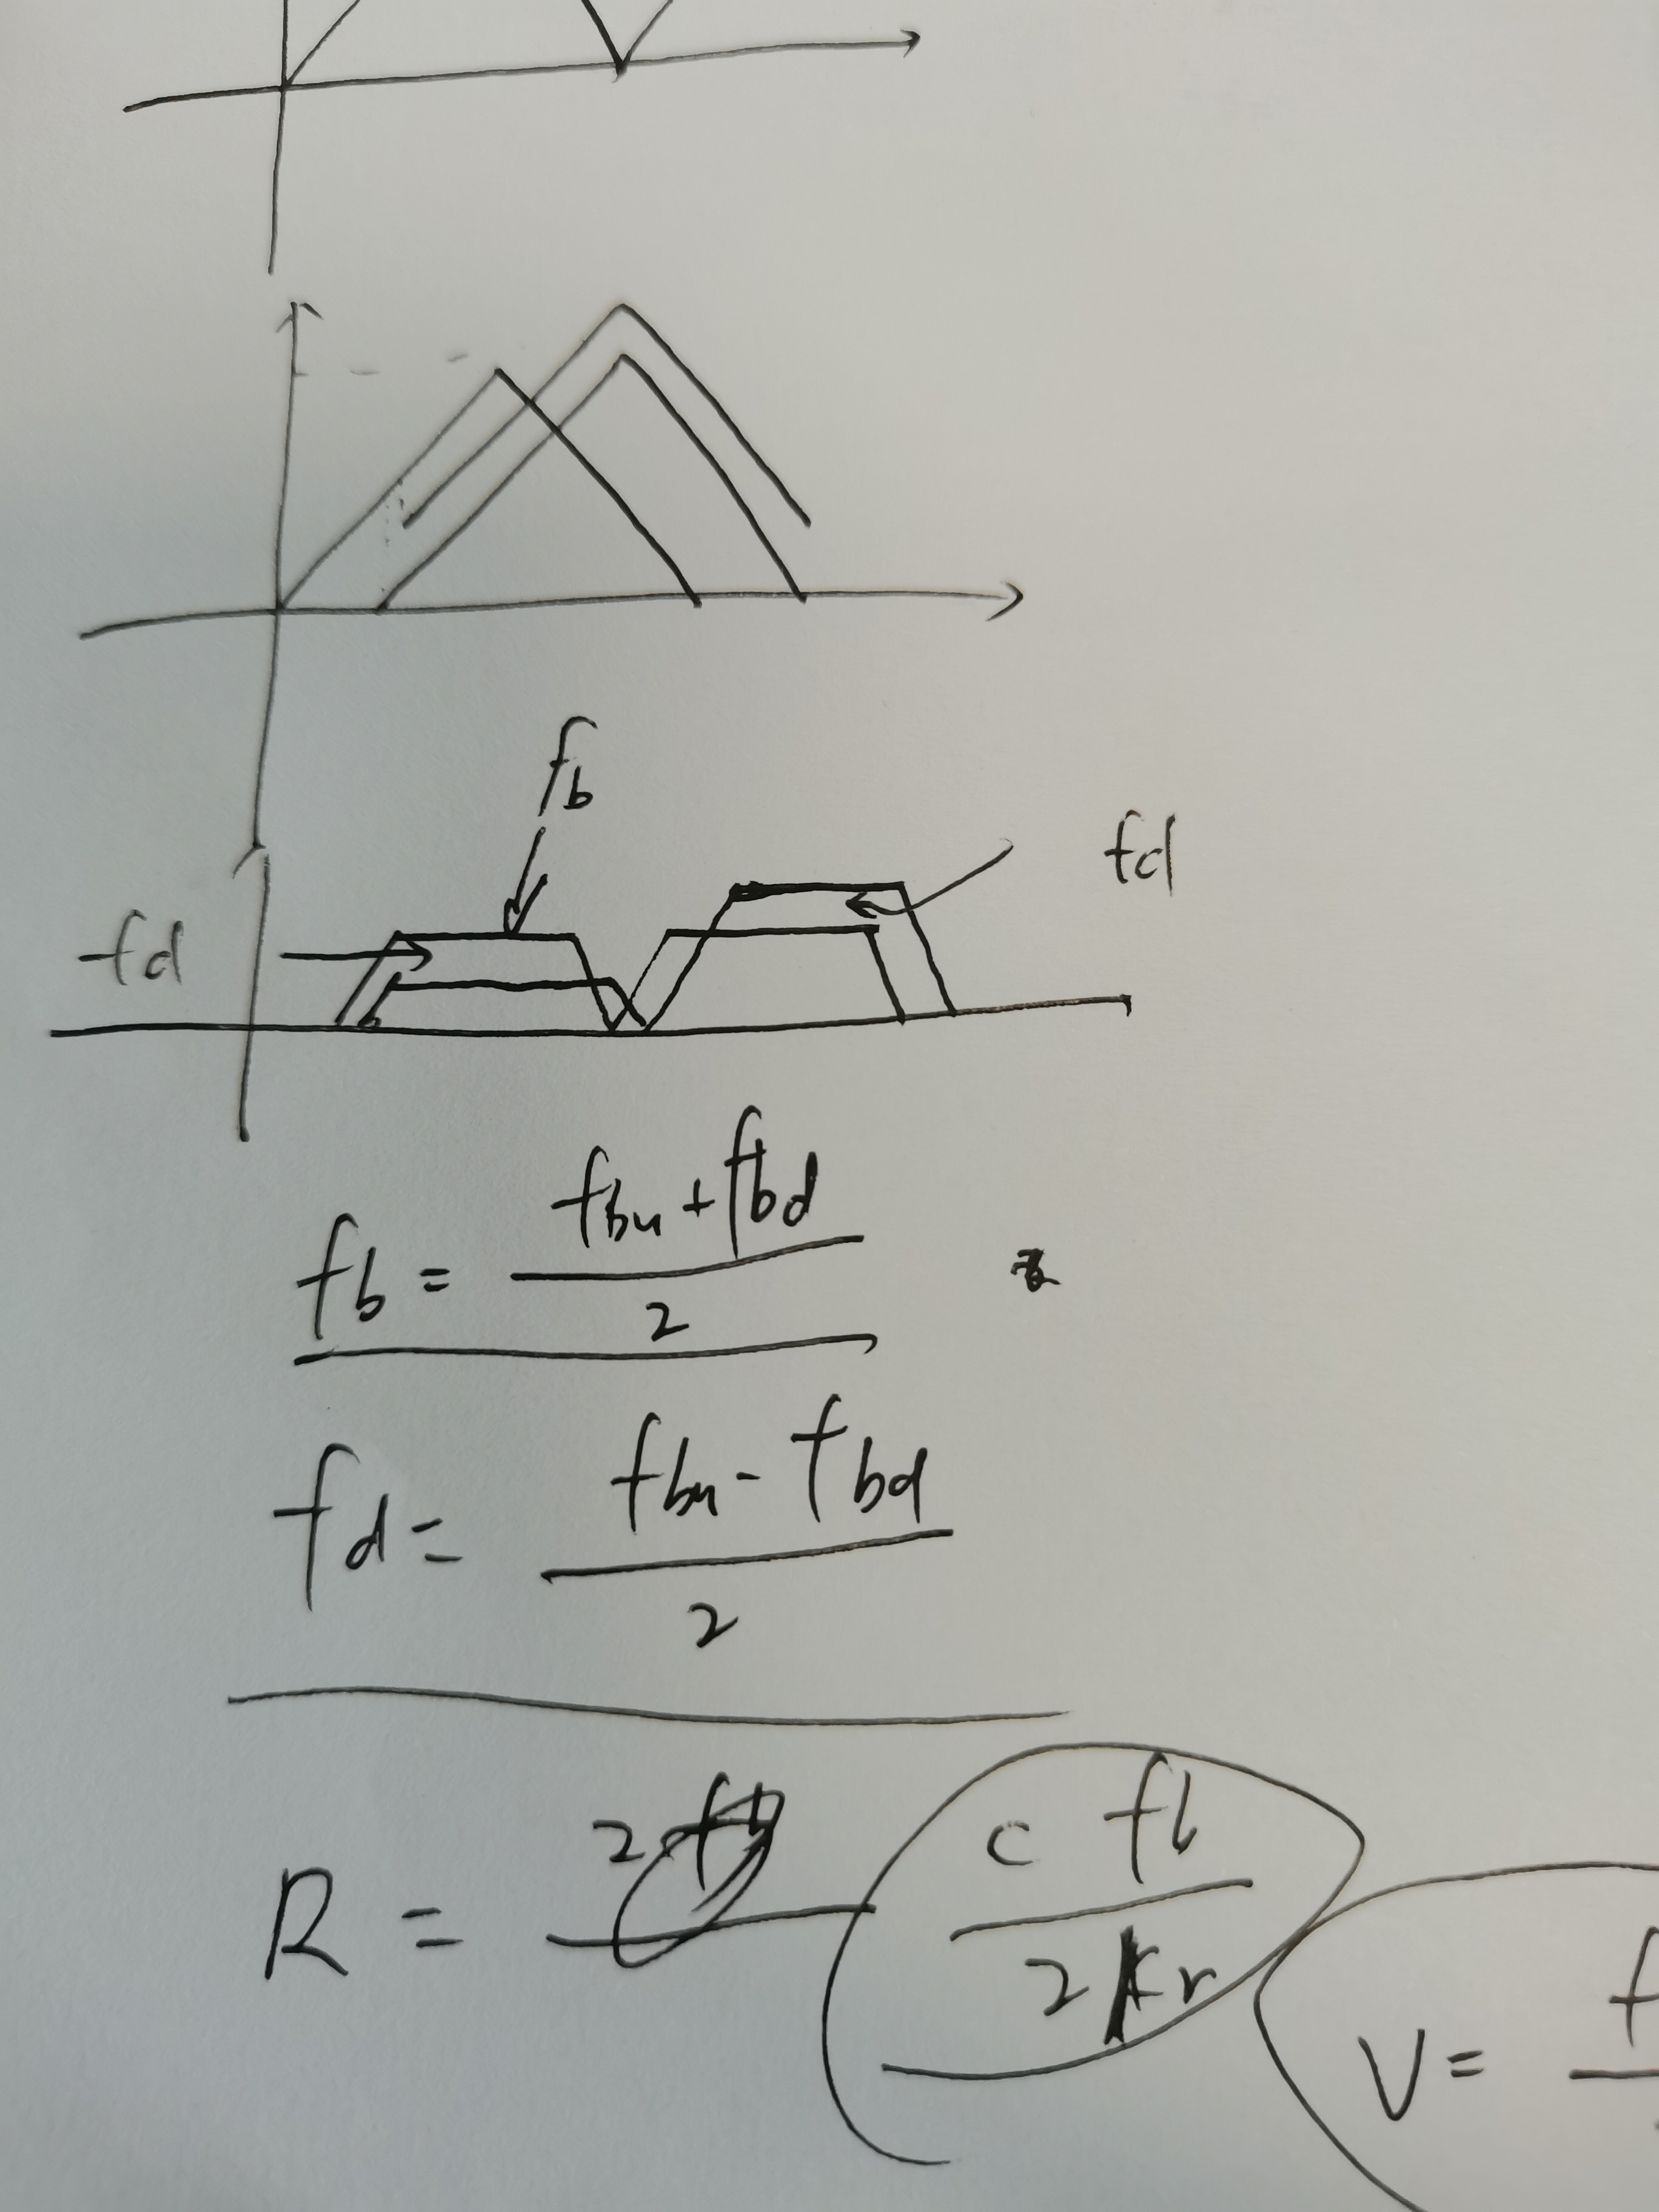 fb
fd
fd
fb = (fbu + fbd) / 2
fd = (fbu - fbd) / 2
R = 2 c fb / 2 kr
V = f